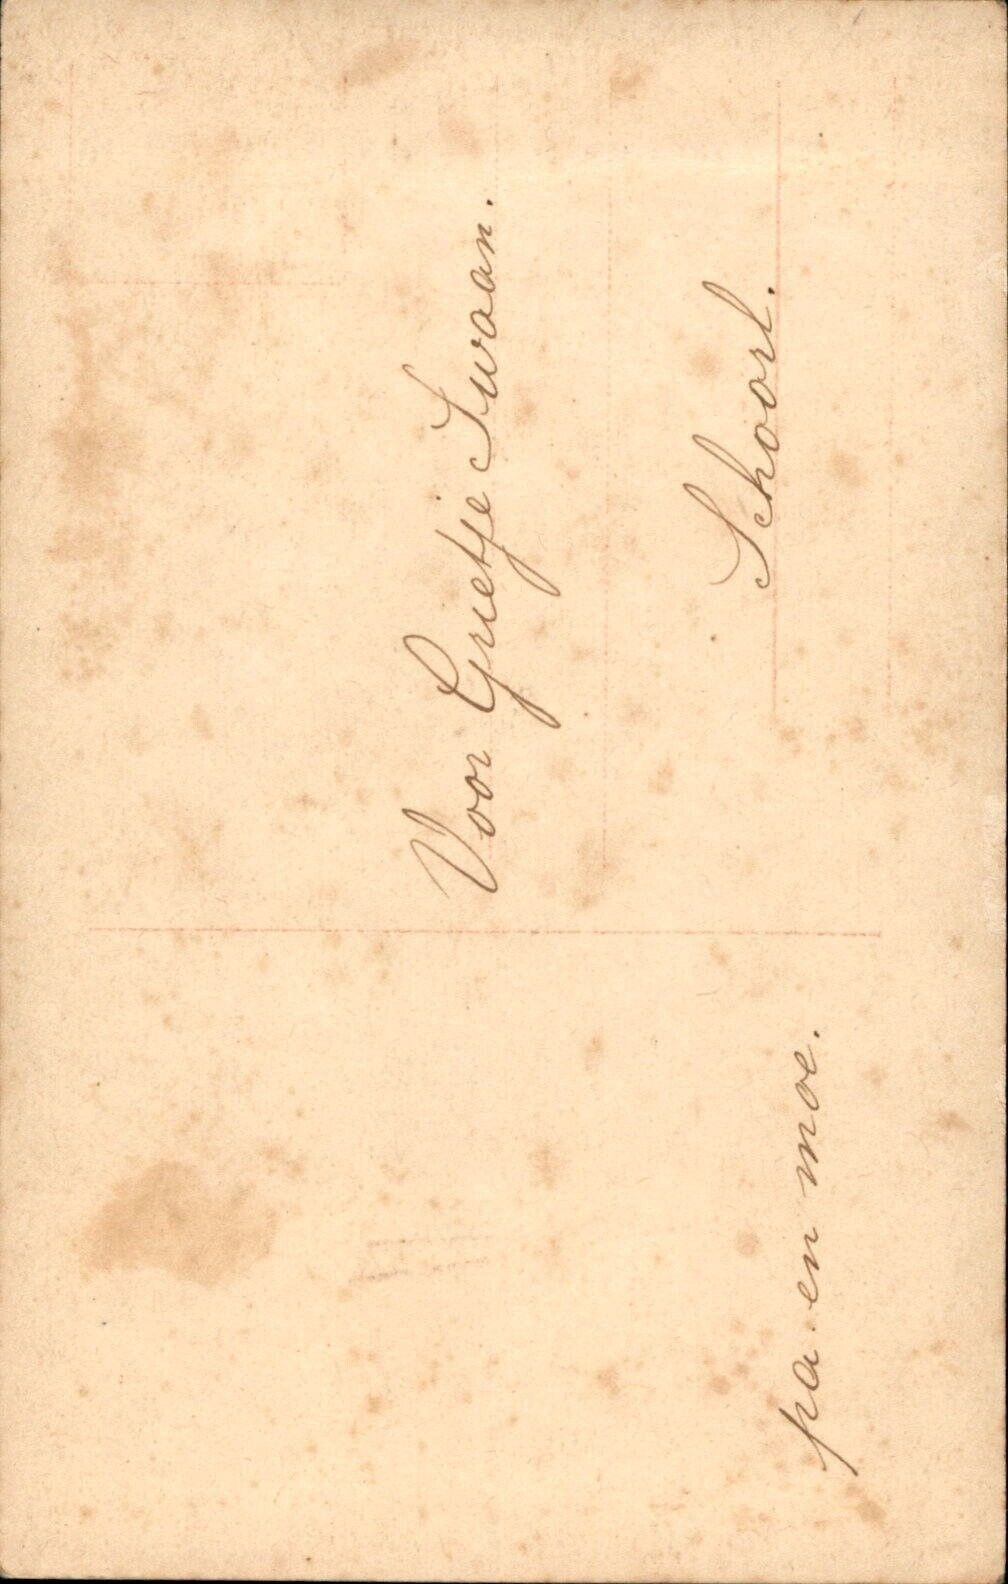 Voor Grietje Swaan.
Schoorl.
pa en moe.